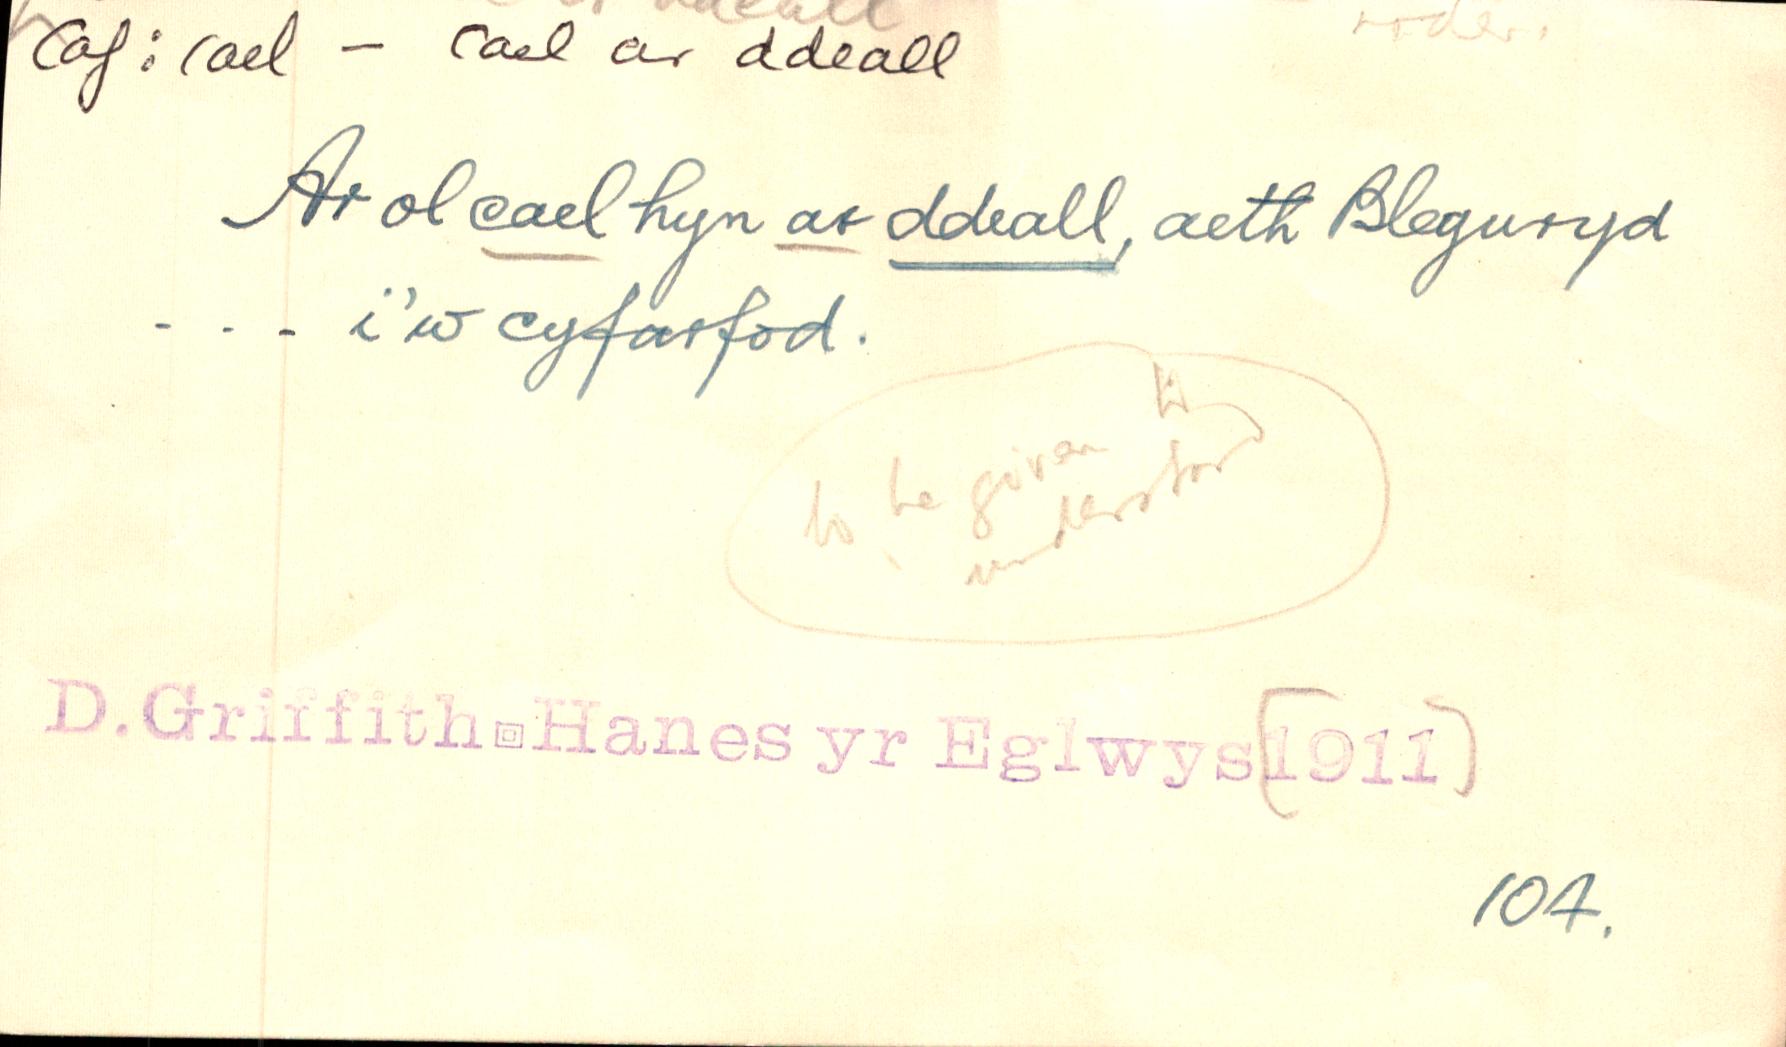 caf: cael – cael ar ddeall
Ar ol cael hyn ar ddeall, aeth Blegwryd
- - - i'w cyfarfod.
to be given to
understand
D.Griffith Hanes yr Eglwys (1911)
104.